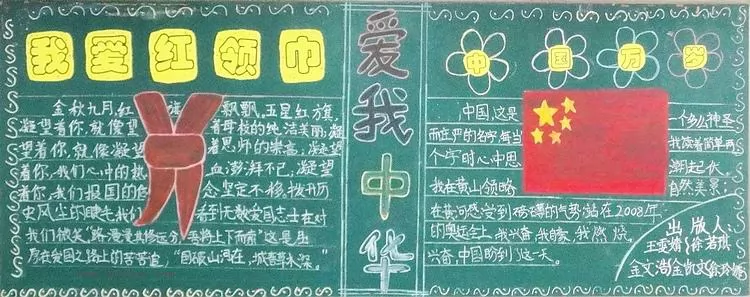 我爱红领巾
金秋九月,红 旗 飘飘。五星红旗,
凝望着你,就像望 着母校的纯洁美丽;凝
望着你,就像凝望 着恩师的崇高;凝望
着你,我们心中的热 血澎湃不已,凝望
着你,我们报国的信 念坚定不移,拨开历
史风尘的睫毛,我们 看到无数爱国志士在对
我们微笑“路漫漫其修远兮,吾将上下而索”这是屈
原在爱国之路上的苦苦追,“国破山河在,城春草木深。”
爱我中华
中国万岁
中国,这是 一个多么神圣
而庄严的名字,每当 我读着简单两
个字时心中思 潮起伏。
我在黄山领略 自然美景;
在黄河感受到磅礴的气势;站在2008年
的奥运会上,我兴奋,我自豪,我燃烧,
兴奋,中国盼到这一天。
出版人:
王雯婧 徐若琪
金文浩 金凯文